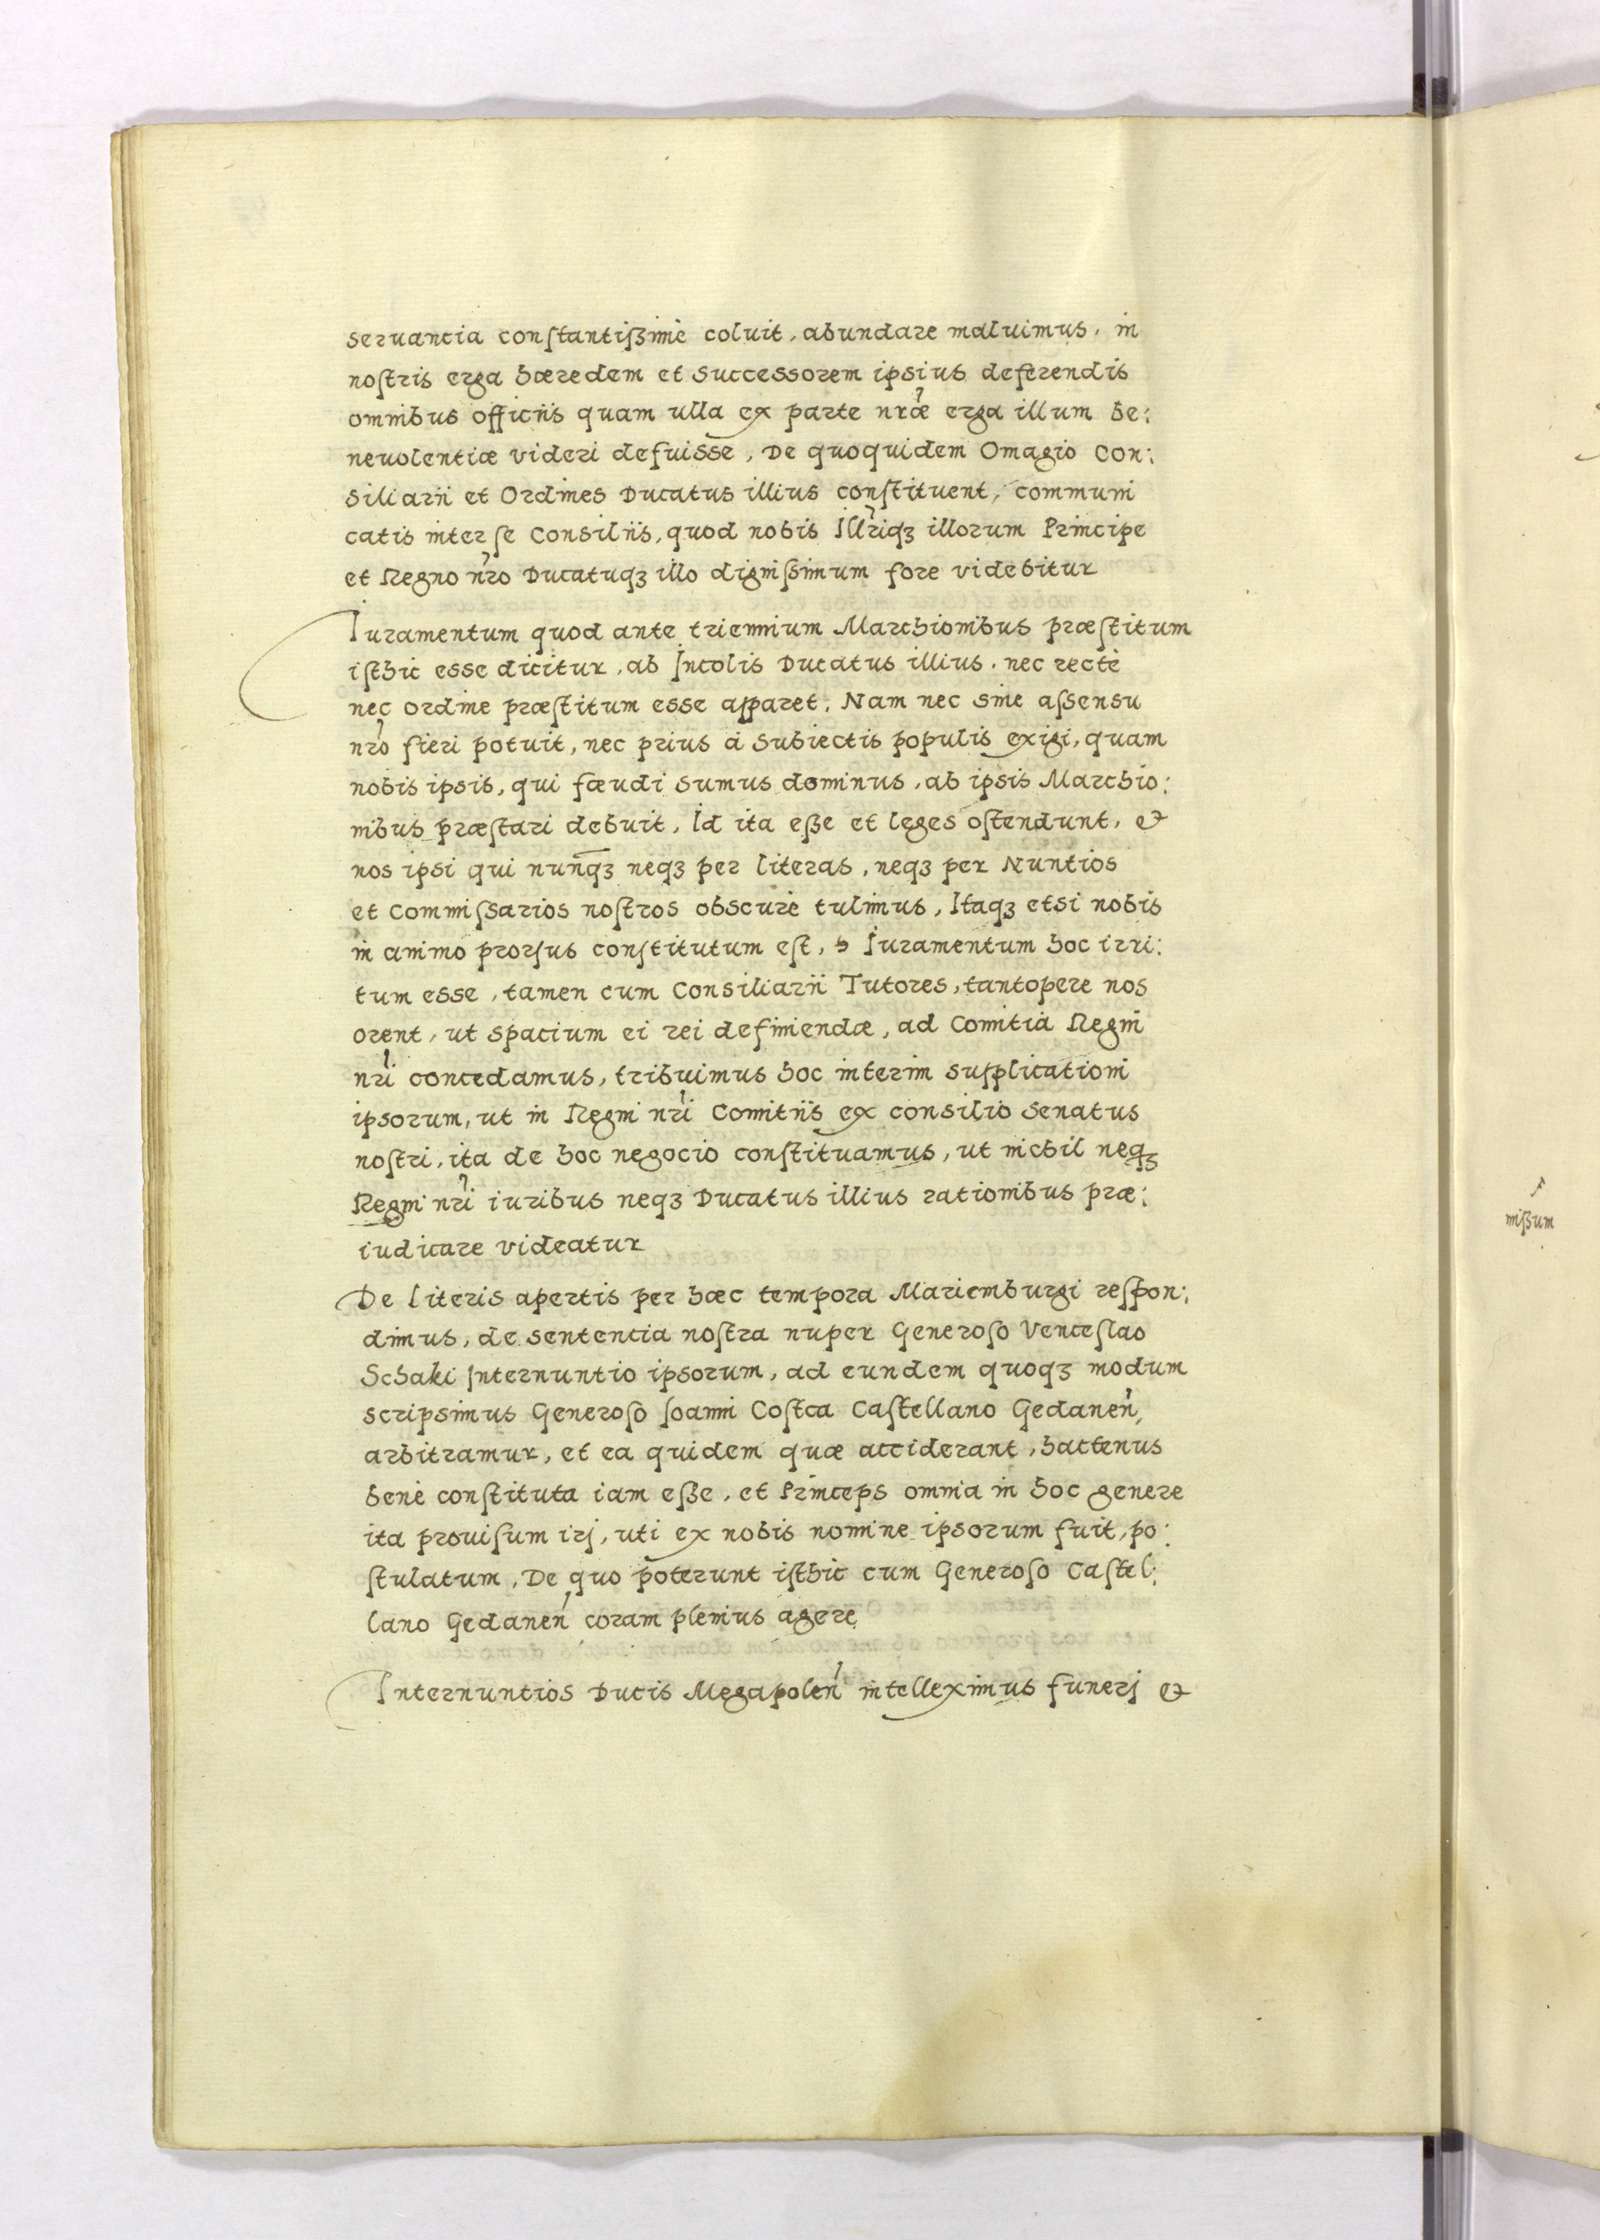 seruancia constantißime coluit, abundare maluimus, in
nostris erga hæredem et successorem ipsius deferendis
omnibus officiis quam ulla ex parte nræ erga illum be:
neuolentiæ videri defuisse, De quoquidem Omagio Con:
siliarii et Ordines Ducatus illius constituent, communi
catis inter se Consiliis, quod nobis Illriqȝ illorum Principe
et Regno nro Ducatuqȝ illo dignissimum fore videbitur
Iuramentum quod ante triennium Marchionibus præstitum
isthic esse dicitur, ab Incolis Ducatus illius, nec rectè
nec ordine præstitum esse apparet, Nam nec sine assensu
nro fieri potuit, nec prius à subiectis populis exigi, quam
nobis ipsis, qui fæudi sumus dominus, ab ipsis Marchio:
nibus præstari debuit, Id ita eße et leges ostendunt, &
nos ipsi qui nunqȝ neqȝ per literas, neqȝ per Nuntios
et Commissarios nostros obscurè tulimus, Itaqȝ etsi nobis
in animo prorsus constitutum est, Iuramentum hoc irri:
tum esse, tamen cum Consiliarii Tutores, tantopere nos
orent, ut spacium ei rei definiendæ, ad Comitia Regni
nri concedamus, tribuimus hoc interim supplicationi
ipsorum, ut in Regni nri Comitiis ex consilio Senatus
nostri, ita de hoc negocio constituamus, ut nichil neqȝ
Regni nri iuribus neqȝ Ducatus illius rationibus præ:
iudicare videatur
De literis apertis per hæc tempora Mariemburgi respon:
dimus, de sententia nostra nuper Generoso Venceslao
Schaki Internuntio ipsorum, ad eundem quoqȝ modum
scripsimus Generoso Ioanni Costca Castellano Gedanen,
arbitramur, et ea quidem quæ acciderant, hactenus
benè constituta iam eße, et Princeps omnia in hoc genere
ita prouisum irj, uti ex nobis nomine ipsorum fuit, po:
stulatum, De quo poterunt isthic cum Generoso Castel:
lano Gedanen coram plenius agere
Internuntios Ducis Megapolen intelleximus funerj &
mißum